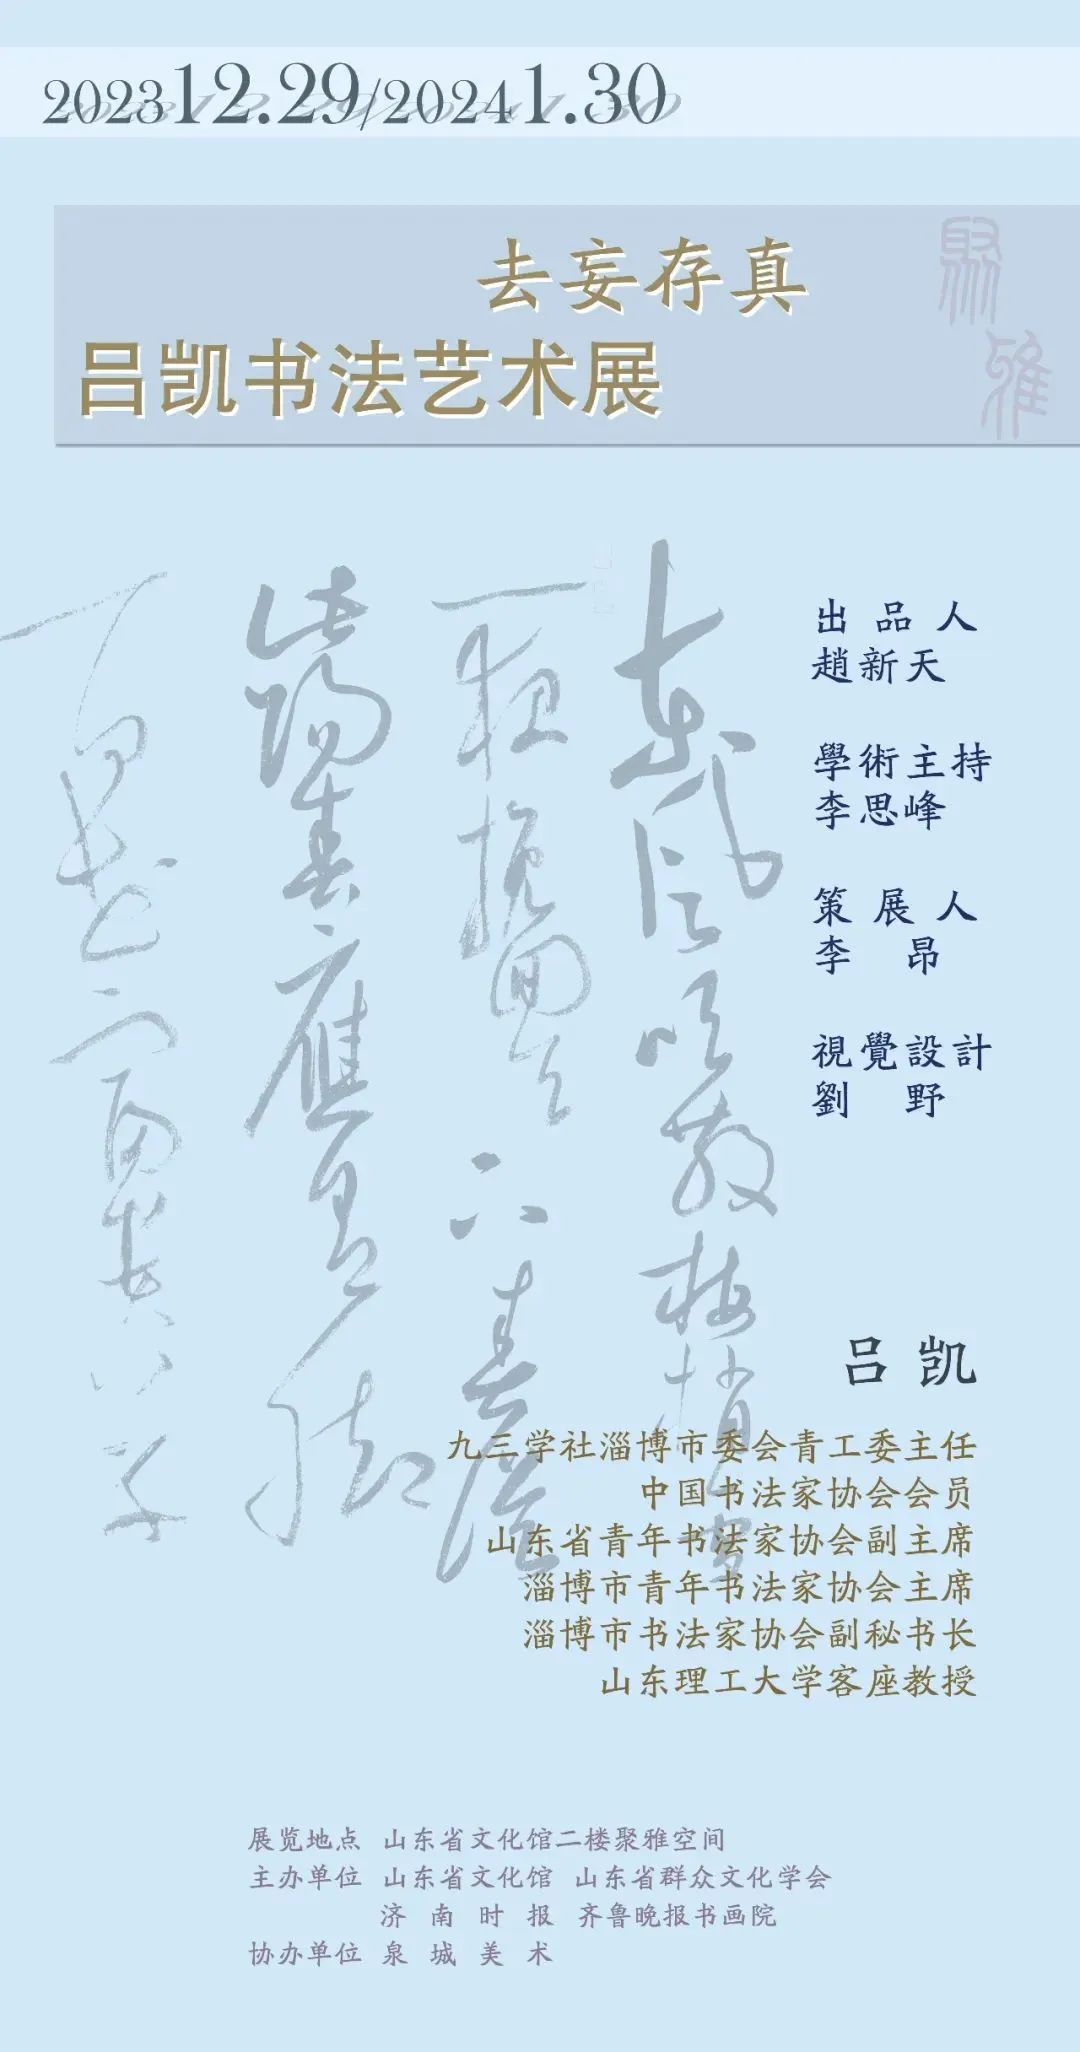 202312.29/20241.30
去妄存真
吕凯书法艺术展
聚雅
出品人
趙新天
學術主持
李思峰
策展人
李昂
視覺設計
劉野
東風吹散梅梢雪
一夜挽回天下春
從此陽春應有腳
百花富貴草
吕凯
九三学社淄博市委会青工委主任
中国书法家协会会员
山东省青年书法家协会副主席
淄博市青年书法家协会主席
淄博市书法家协会副秘书长
山东理工大学客座教授
展览地点 山东省文化馆二楼聚雅空间
主办单位 山东省文化馆 山东省群众文化学会
济南时报 齐鲁晚报书画院
协办单位 泉城美术